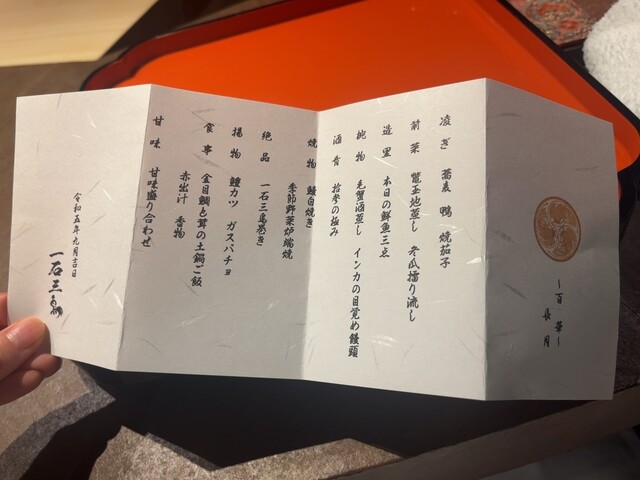 〜百華〜
長月
凌ぎ 蕎麦 鴨 焼茄子
前菜 鼈玉地蒸し 冬瓜擂り流し
造里 本日の鮮魚三点
椀物 毛蟹酒蒸し インカの目覚め饅頭
酒肴 拾参の極み
焼物 鰻白焼き
季節野菜炉端焼
絶品 一石三鳥巻き
揚物 鱧カツ ガスパチョ
食事 金目鯛と茸の土鍋ご飯
赤出汁 香物
甘味 甘味盛り合わせ
令和五年九月吉日
一石三鳥